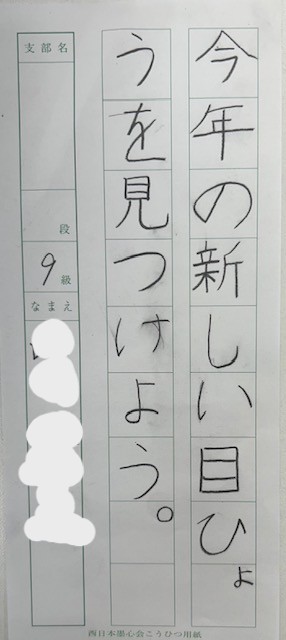 今年の新しい目ひょ
うを見つけよう。
支部名
段
9級
なまえ
西日本墨心会こうひつ用紙